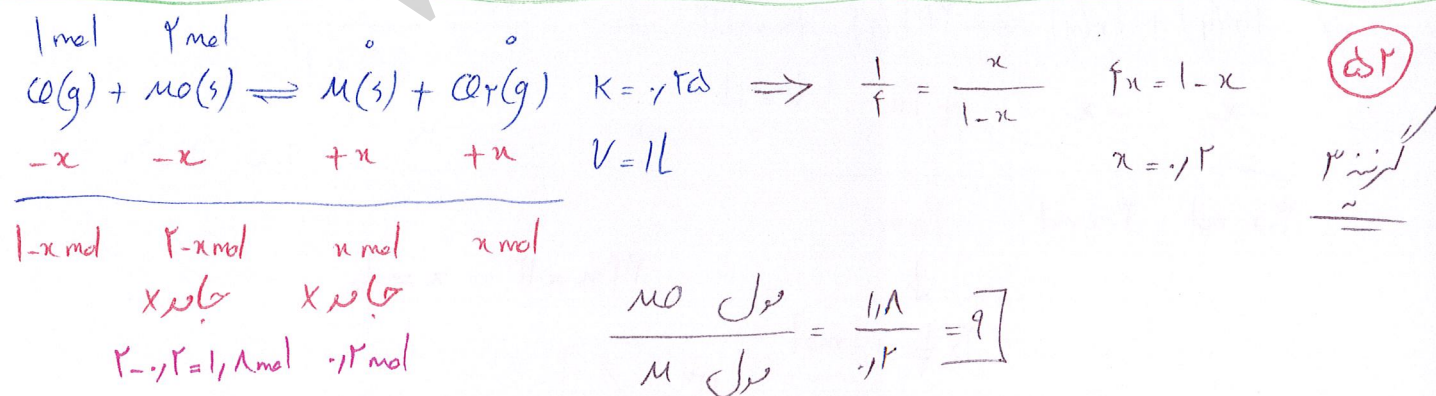 ۱ mol ۲ mol ۰ ۰
CO(g) + MO(s) ⇌ M(s) + CO۲(g) K = ۰٫۲۵ ⇒ ۱/۴ = x/(۱-x) ۴x = ۱-x ۵۲
-x -x +x +x V = ۱L x = ۰٫۲ گزینه ۳
۱-x mol ۲-x mol x mol x mol
جامد x جامد x
۲-۰٫۲=۱٫۸ mol ۰٫۲ mol
مول MO / مول M = ۱٫۸/۰٫۲ = ۹